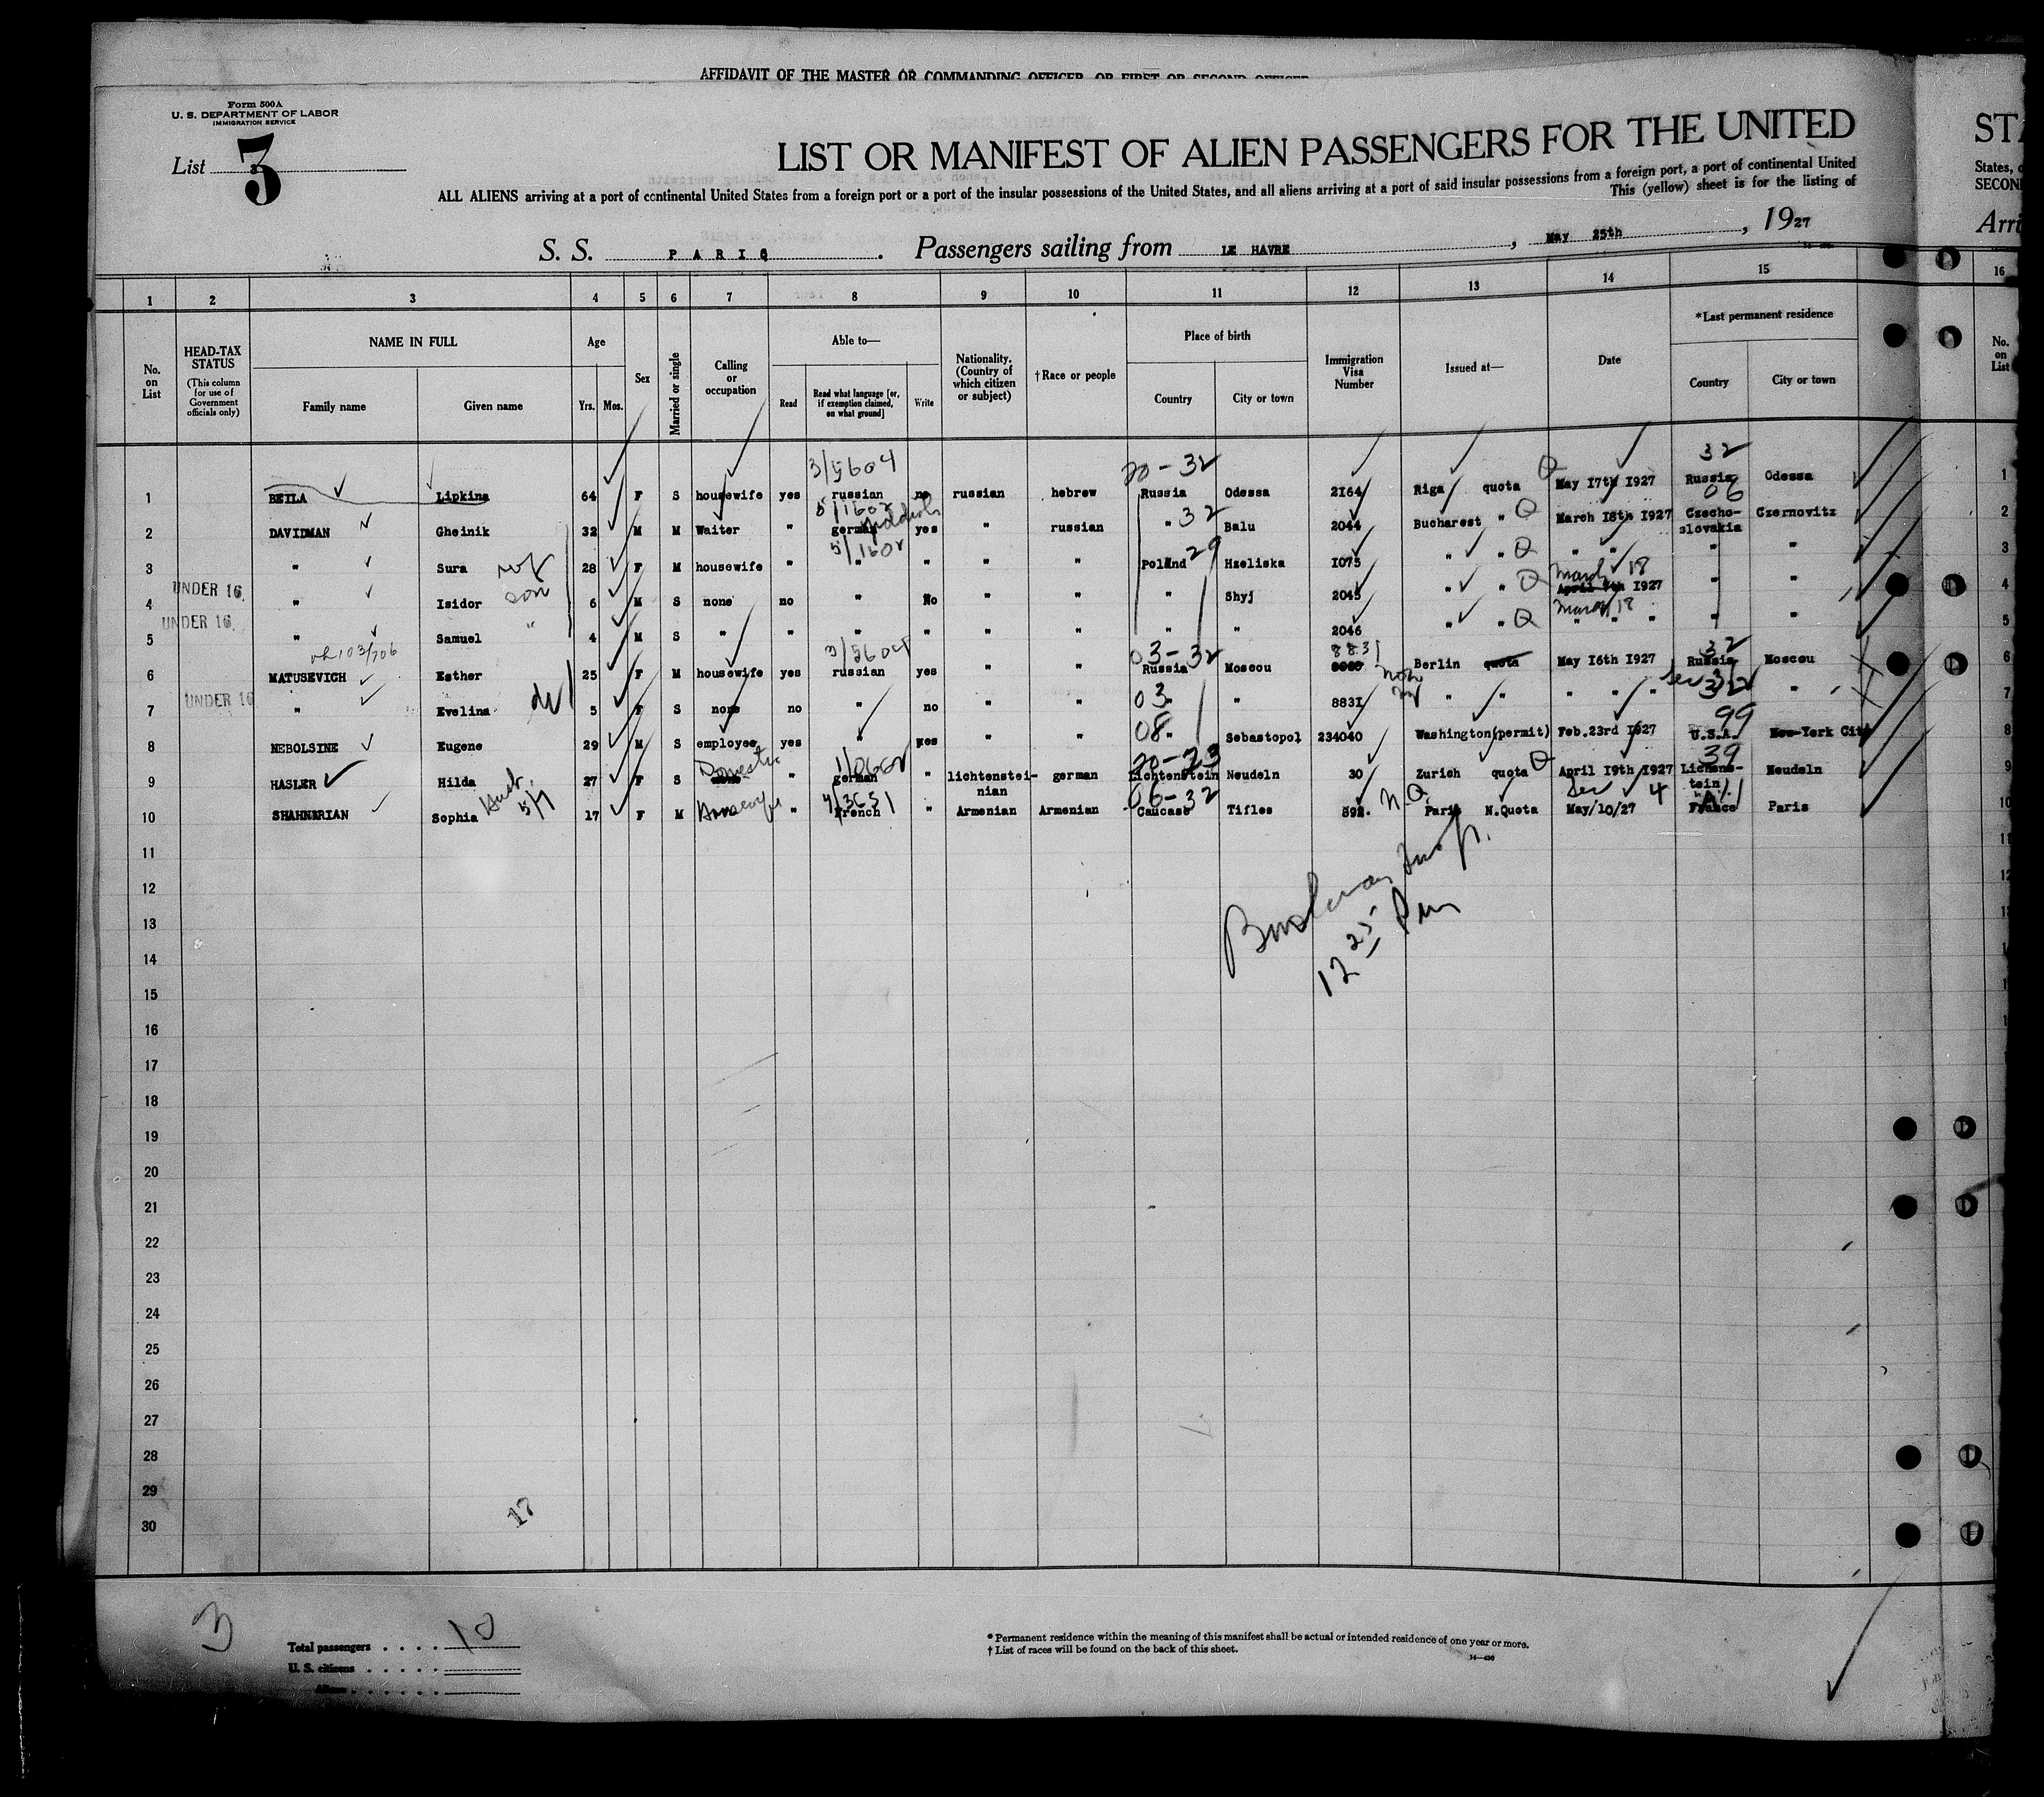 AFFIDAVIT OF THE MASTER OR COMMANDING OFFICER, OR FIRST OR SECOND OFFICER
Form 500A
U. S. DEPARTMENT OF LABOR
IMMIGRATION SERVICE
List 3
LIST OR MANIFEST OF ALIEN PASSENGERS FOR THE UNITED
STA
ALL ALIENS arriving at a port of continental United States from a foreign port or a port of the insular possessions of the United States, and all aliens arriving at a port of said insular possessions from a foreign port, a port of continental United
States, o
This (yellow) sheet is for the listing of
SECON
S. S. PARIS. Passengers sailing from LE HAVRE, May 25th, 1927
Arri
1 2 3 4 5 6 7 8 9 10 11 12 13 14 15 16
No. on List
HEAD-TAX STATUS
(This column for use of Government officials only)
NAME IN FULL
Family name
Given name
Age
Yrs. Mos.
Sex
Married or single
Calling or occupation
Able to—
Read
Read what language [or, if exemption claimed, on what ground]
Write
Nationality. (Country of which citizen or subject)
†Race or people
Place of birth
Country
City or town
Immigration Visa Number
Issued at—
Date
*Last permanent residence
Country
City or town
No. on List
3/5604 20-32 Q 32
1 BEILA Lipkina 64 F S housewife yes russian no russian hebrew Russia Odessa 2164 Riga quota May 17th 1927 Russia Odessa 1
5/1602 32 Q 06
2 DAVIDMAN Gheinik 32 M M Waiter " german yes " russian " Balu 2044 Bucharest " March 18th 1927 Czecho-slovakia Czernovitz 2
5/1602 29 Q
3 " Sura wf 28 F M housewife " " " " " Poland Hzeliska 1075 " " " " " " 3
UNDER 16. son Q March 18
4 " Isidor 6 M S none no " No " " " Shyj 2045 " " April 9th 1927 " " 4
UNDER 16. " Q March 18
5 " Samuel 4 M S " " " " " " " " 2046 " " " " " " " 5
103/706 3/5604 03-32 8831 32
6 MATUSEVICH Esther 25 F M housewife yes russian yes " " Russia Moscou Berlin quota May 16th 1927 Russia Moscou 6
UNDER 16 03 32
7 " Evelina 5 F S none no " no " " " " 8831 " " " " " " 7
08 99
8 NEBOLSINE Eugene 29 M S employee yes " yes " " " Sebastopol 234040 Washington(permit) Feb.23rd 1927 U.S.A. New-York City 8
Domestic 20-23 Q 39
9 HASLER Hilda 27 F S none " german " lichtenstei-nian german Lichtenstein Neudeln 30 Zurich quota April 19th 1927 Lichens-tein Neudeln 9
Husb. 5/7 Housewife 4/3651 06-32 N.Q. Sec 4
10 SHAHNARIAN Sophia 17 F M " French " Armenian Armenian Caucase Tifles 892. Paris N.Quota May/10/27 France Paris 10
11
12
13
14
15
16
17
18
19
20
21
22
23
24
25
26
27
28
29
30
12 25 Pm
17
3
Total passengers . . . . 10
U. S. citizens . . . . .
Aliens . . . . . .
* Permanent residence within the meaning of this manifest shall be actual or intended residence of one year or more.
† List of races will be found on the back of this sheet.
14—430